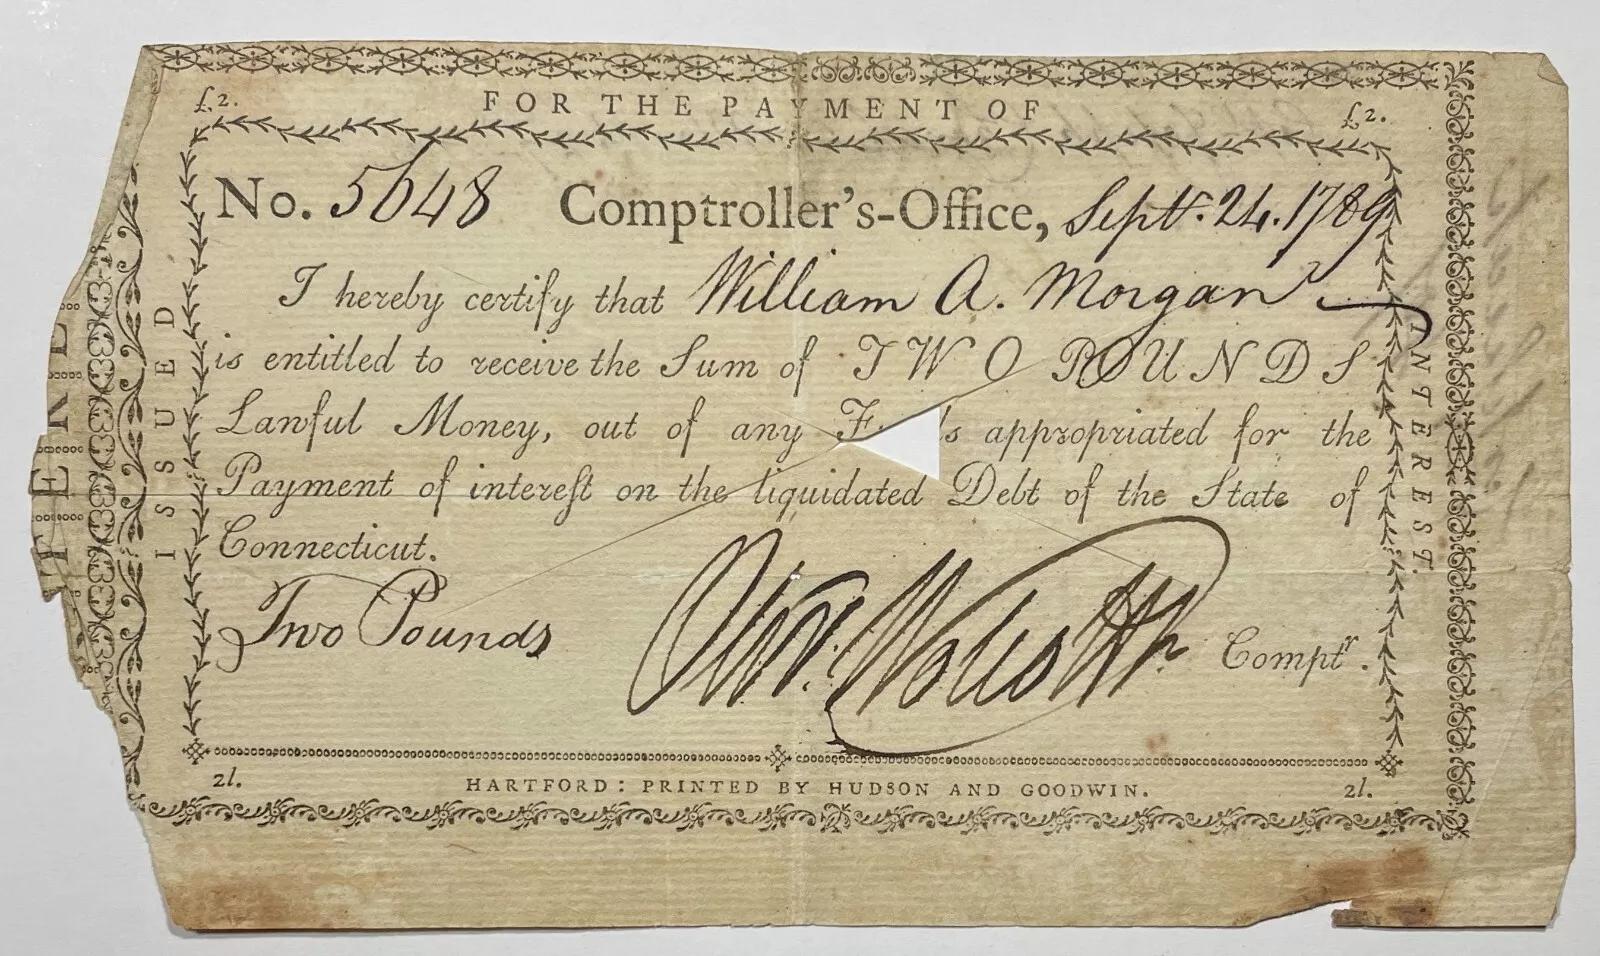 £2. FOR THE PAYMENT OF £2.
No. 5648 Comptroller's-Office, Sept. 24. 1789
I hereby certify that William A. Morgan
is entitled to receive the Sum of TWO POUNDS
Lawful Money, out of any appropriated for the
Payment of intereſt on the liquidated Debt of the State of
Connecticut.
Two Pounds Olivr. Wolcott Comptr.
2l. HARTFORD: PRINTED BY HUDSON AND GOODWIN. 2l.
ISSUED
INTEREST.